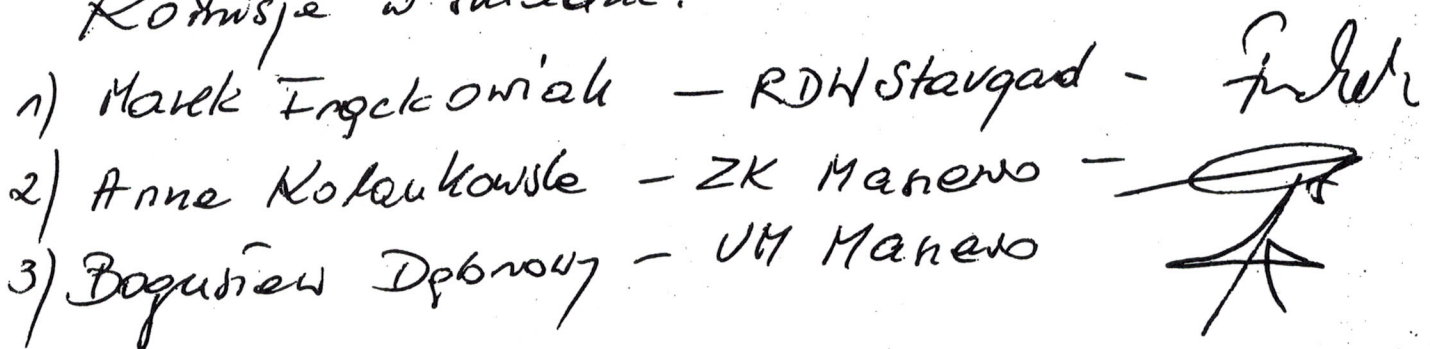 Komisje w składzie:
1) Marek Frąckowiak — RDW Stargard -
2) Anna Kołaukowska — ZK Manowo —
3) Bogusław Dębnowy — UM Manowo